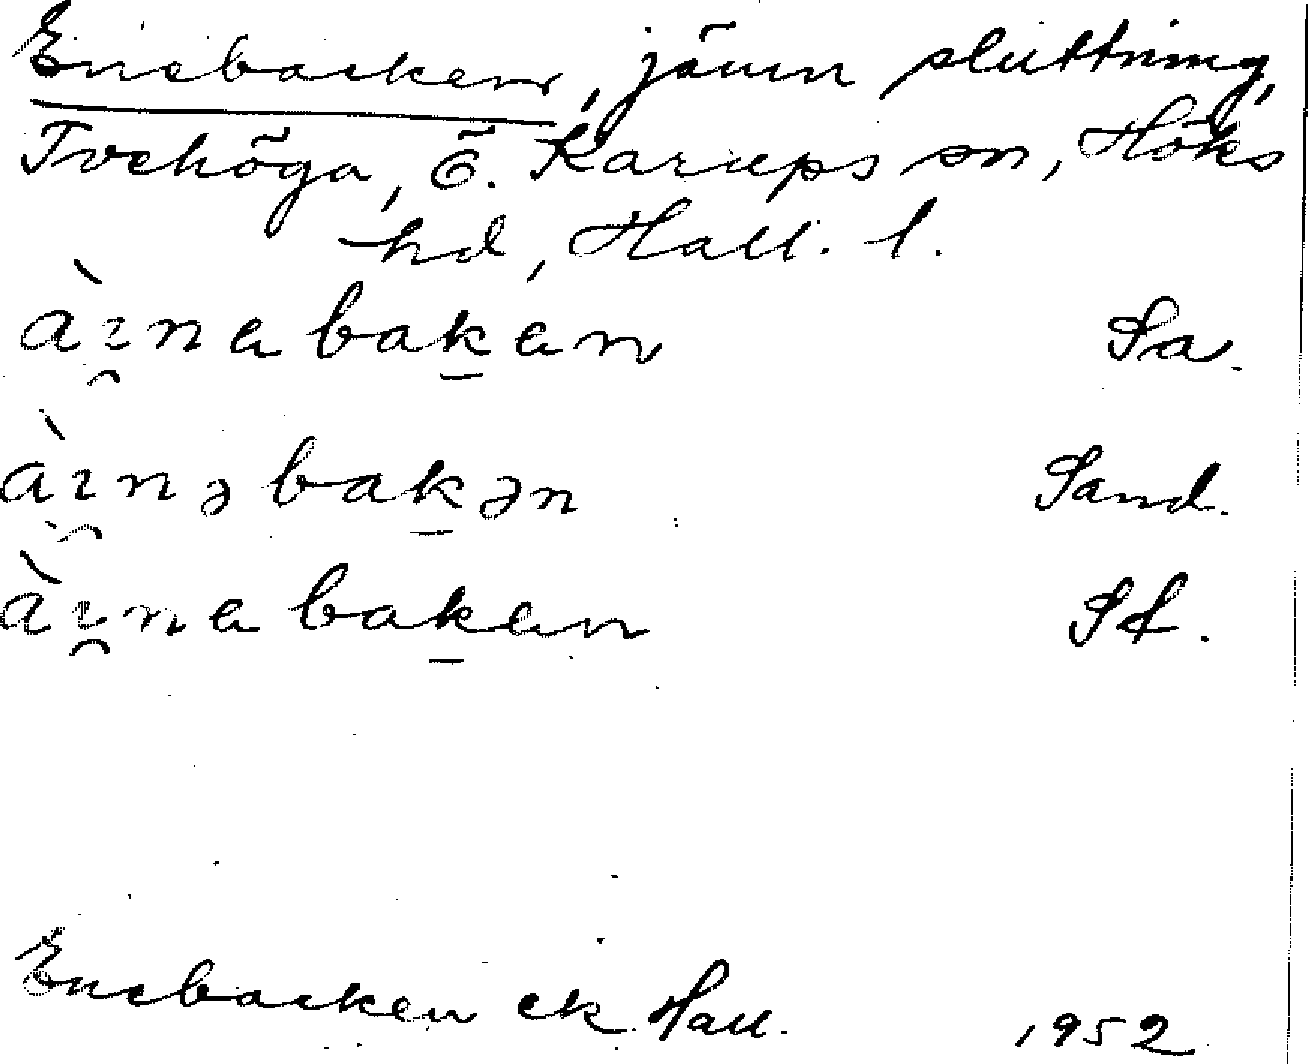 Enebacken, jämn sluttning,
Tvehöga, Ö. Karups sn, Höks
hd, Hall. l.
àɿnabakan Sa.
àɿnəbakən Sand.
àɿnabakan
Enebacken ek Hall. 1952